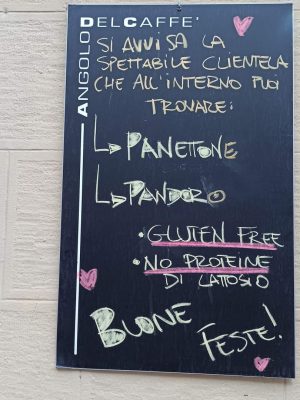 ANGOLO DELCAFFE'
SI AVVISA LA
SPETTABILE CLIENTELA
CHE ALL'INTERNO PUOI
TROVARE:
↳ PANETTONE
↳ PANDORO
• GLUTEN FREE
• NO PROTEINE
DI LATTOSIO
BUONE
FESTE!